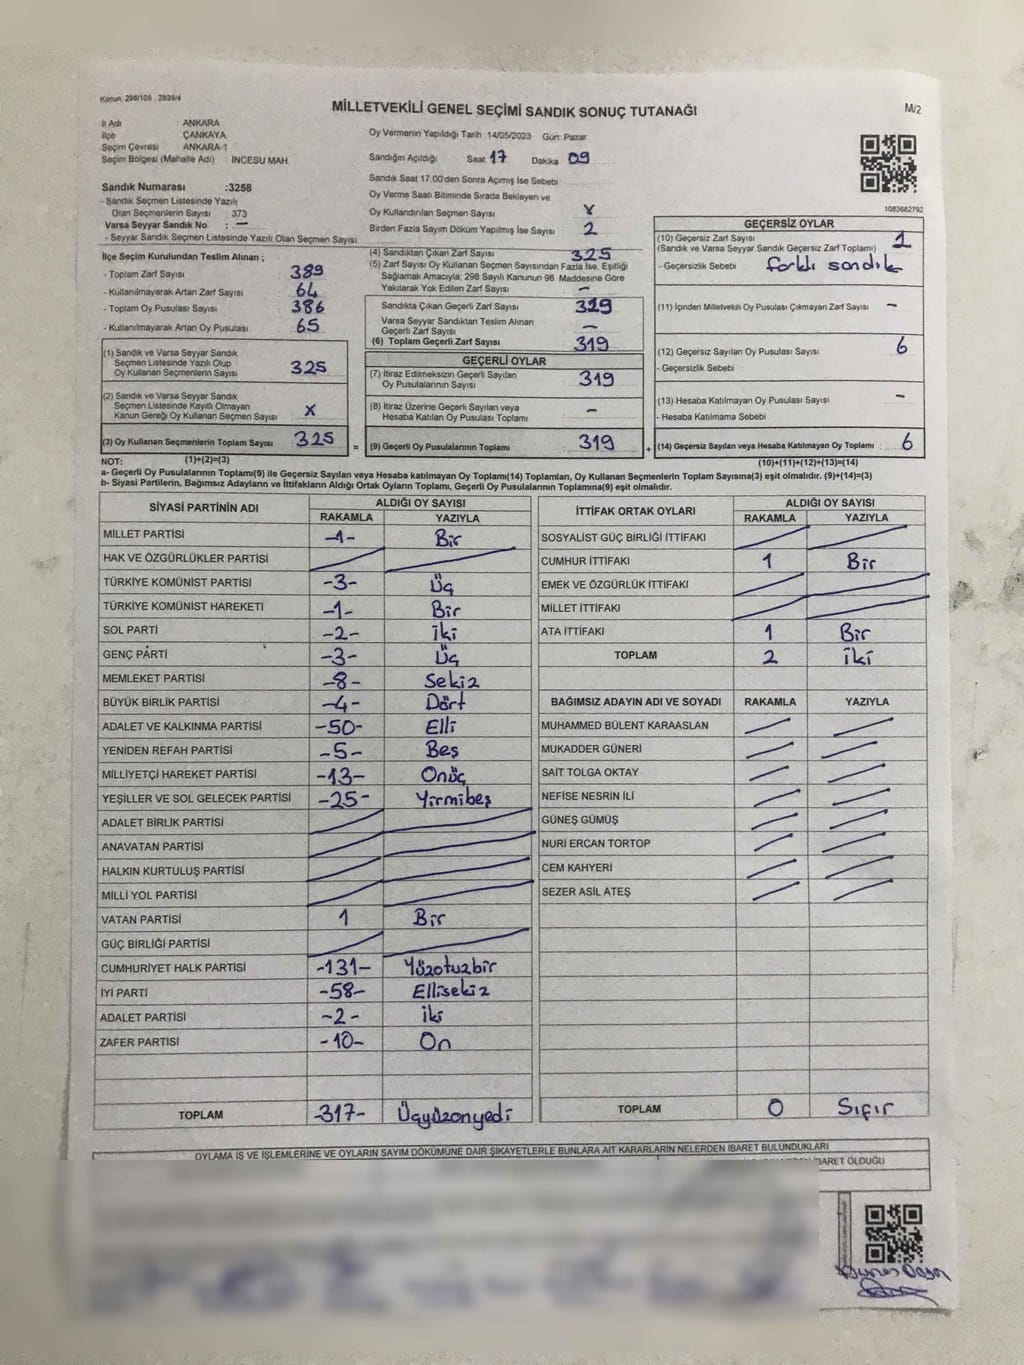 Kanun: 298/105 , 2839/4
MİLLETVEKİLİ GENEL SEÇİMİ SANDIK SONUÇ TUTANAĞI
M/2
İl Adı ANKARA
İlçe ÇANKAYA
Seçim Çevresi ANKARA-1
Seçim Bölgesi (Mahalle Adı) İNCESU MAH.
Sandık Numarası :3258
- Sandık Seçmen Listesinde Yazılı
Olan Seçmenlerin Sayısı : 373
Varsa Seyyar Sandık No : —
- Seyyar Sandık Seçmen Listesinde Yazılı Olan Seçmen Sayısı:
İlçe Seçim Kurulundan Teslim Alınan ;
- Toplam Zarf Sayısı 389
- Kullanılmayarak Artan Zarf Sayısı 64
- Toplam Oy Pusulası Sayısı 386
- Kullanılmayarak Artan Oy Pusulası 65
(1) Sandık ve Varsa Seyyar Sandık
Seçmen Listesinde Yazılı Olup
Oy Kullanan Seçmenlerin Sayısı 325
(2) Sandık ve Varsa Seyyar Sandık
Seçmen Listesinde Kayıtlı Olmayan
Kanun Gereği Oy Kullanan Seçmen Sayısı X
(3) Oy Kullanan Seçmenlerin Toplam Sayısı 325 =
Oy Vermenin Yapıldığı Tarih :14/05/2023 Gün: Pazar
Sandığın Açıldığı Saat 17 Dakika 09
Sandık Saat 17.00'den Sonra Açımış İse Sebebi
Oy Verme Saati Bitiminde Sırada Bekleyen ve
Oy Kullandırılan Seçmen Sayısı
Birden Fazla Sayım Döküm Yapılmış İse Sayısı 2
(4) Sandıktan Çıkan Zarf Sayısı 325
(5) Zarf Sayısı Oy Kullanan Seçmen Sayısından Fazla İse, Eşitliği
Sağlamak Amacıyla, 298 Sayılı Kanunun 98. Maddesine Göre
Yakılarak Yok Edilen Zarf Sayısı —
Sandıkta Çıkan Geçerli Zarf Sayısı 319
Varsa Seyyar Sandıktan Teslim Alınan
Geçerli Zarf Sayısı —
(6) Toplam Geçerli Zarf Sayısı 319
GEÇERLİ OYLAR
(7) İtiraz Edilmeksizin Geçerli Sayılan
Oy Pusulalarının Sayısı 319
(8) İtiraz Üzerine Geçerli Sayılan veya
Hesaba Katılan Oy Pusulası Toplamı —
(9) Geçerli Oy Pusulalarının Toplamı 319 +
1083682792
GEÇERSİZ OYLAR
(10) Geçersiz Zarf Sayısı 1
(Sandık ve Varsa Seyyar Sandık Geçersiz Zarf Toplamı)
- Geçersizlik Sebebi farklı sandık
(11) İçinden Milletvekili Oy Pusulası Çıkmayan Zarf Sayısı —
(12) Geçersiz Sayılan Oy Pusulası Sayısı 6
- Geçersizlik Sebebi
(13) Hesaba Katılmayan Oy Pusulası Sayısı —
- Hesaba Katılmama Sebebi
(14) Geçersiz Sayılan veya Hesaba Katılmayan Oy Toplamı 6
NOT: (1)+(2)=(3) (10)+(11)+(12)+(13)=(14)
a- Geçerli Oy Pusulalarının Toplamı(9) ile Geçersiz Sayılan veya Hesaba katılmayan Oy Toplamı(14) Toplamları, Oy Kullanan Seçmenlerin Toplam Sayısına(3) eşit olmalıdır. (9)+(14)=(3)
b- Siyasi Partilerin, Bağımsız Adayların ve İttifakların Aldığı Ortak Oyların Toplamı, Geçerli Oy Pusulalarının Toplamına(9) eşit olmalıdır.
SİYASİ PARTİNİN ADI ALDIĞI OY SAYISI
RAKAMLA YAZIYLA
MİLLET PARTİSİ -1- Bir
HAK VE ÖZGÜRLÜKLER PARTİSİ
TÜRKİYE KOMÜNİST PARTİSİ -3- Üç
TÜRKİYE KOMÜNİST HAREKETİ -1- Bir
SOL PARTİ -2- İki
GENÇ PARTİ -3- Üç
MEMLEKET PARTİSİ -8- Sekiz
BÜYÜK BİRLİK PARTİSİ -4- Dört
ADALET VE KALKINMA PARTİSİ -50- Elli
YENİDEN REFAH PARTİSİ -5- Beş
MİLLİYETÇİ HAREKET PARTİSİ -13- Onüç
YEŞİLLER VE SOL GELECEK PARTİSİ -25- Yirmibeş
ADALET BİRLİK PARTİSİ
ANAVATAN PARTİSİ
HALKIN KURTULUŞ PARTİSİ
MİLLİ YOL PARTİSİ
VATAN PARTİSİ 1 Bir
GÜÇ BİRLİĞİ PARTİSİ
CUMHURİYET HALK PARTİSİ -131- Yüzotuzbir
İYİ PARTİ -58- Ellisekiz
ADALET PARTİSİ -2- İki
ZAFER PARTİSİ -10- On
TOPLAM -317- Üçyüzonyedi
İTTİFAK ORTAK OYLARI ALDIĞI OY SAYISI
RAKAMLA YAZIYLA
SOSYALİST GÜÇ BİRLİĞİ İTTİFAKI
CUMHUR İTTİFAKI 1 Bir
EMEK VE ÖZGÜRLÜK İTTİFAKI
MİLLET İTTİFAKI
ATA İTTİFAKI 1 Bir
TOPLAM 2 İki
BAĞIMSIZ ADAYIN ADI VE SOYADI RAKAMLA YAZIYLA
MUHAMMED BÜLENT KARAASLAN
MUKADDER GÜNERİ
SAİT TOLGA OKTAY
NEFİSE NESRİN İLİ
GÜNEŞ GÜMÜŞ
NURİ ERCAN TORTOP
CEM KAHYERİ
SEZER ASİL ATEŞ
TOPLAM 0 Sıfır
OYLAMA İŞ VE İŞLEMLERİNE VE OYLARIN SAYIM DÖKÜMÜNE DAİR ŞİKAYETLERLE BUNLARA AİT KARARLARIN NELERDEN İBARET BULUNDUKLARI
İBARET OLDUĞU